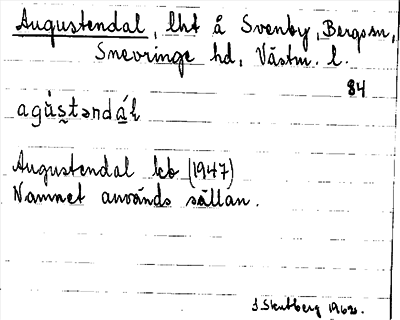 Augustendal, lht å Svenby, Bergs sn,
Snevringe hd, Västm. l.
84
agùs̬təndá̱l
Augustendal kb (1947)
Namnet används sällan.
J. Skutberg 1962.